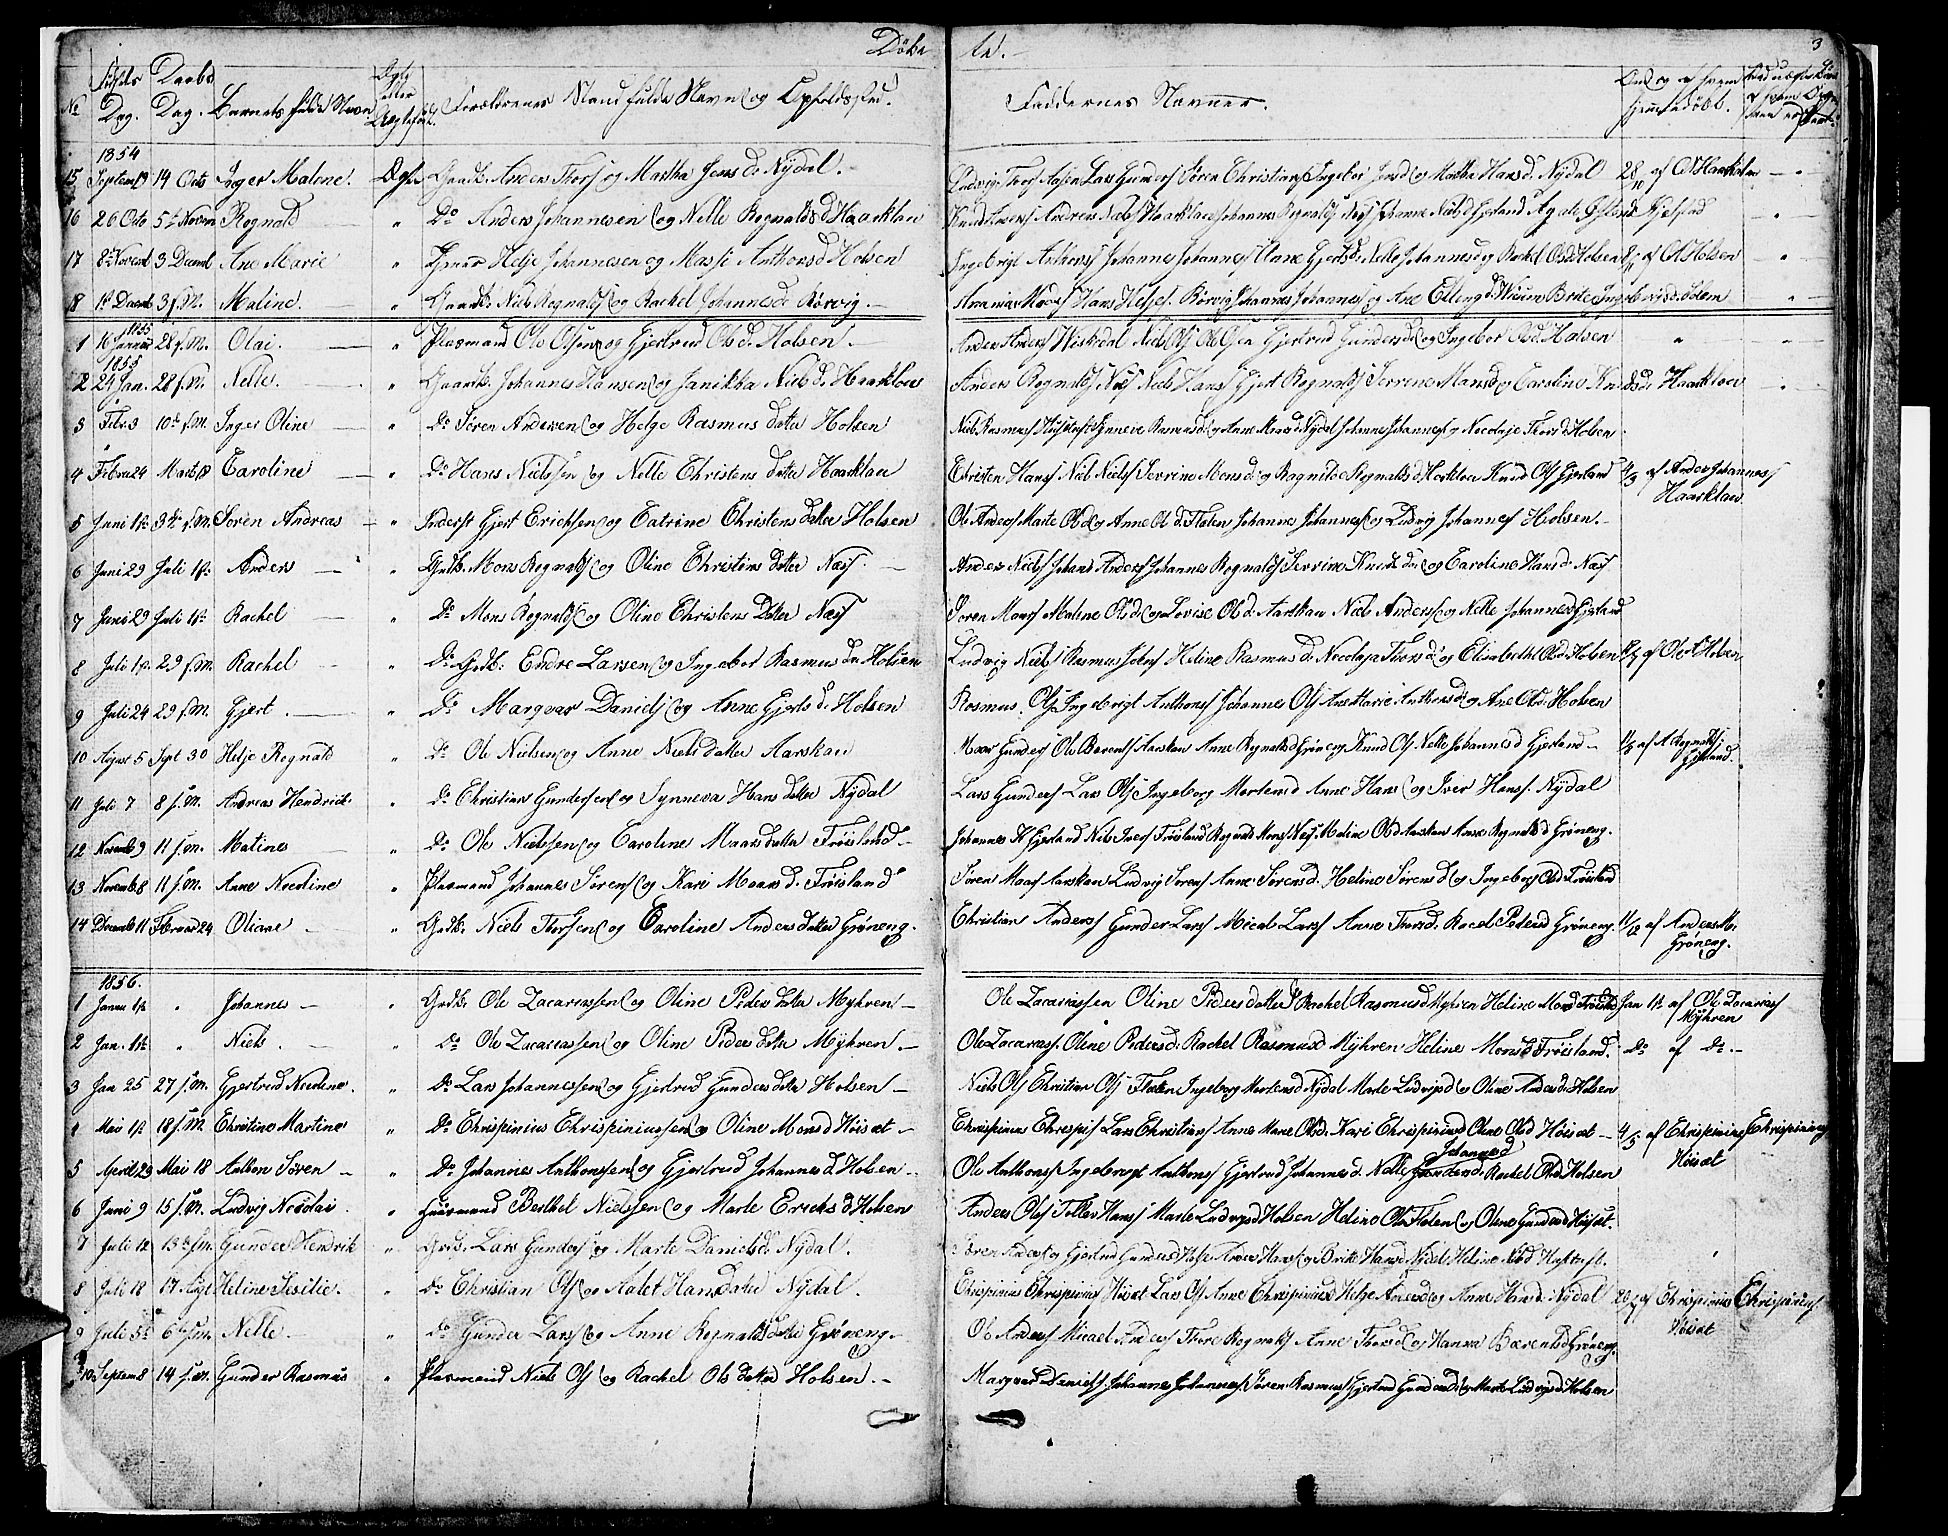 Döbte. 3
No Fødsels Dag. Daabs Dag. Barnets fulde Navn Ægte eller Uægtefødt. Forældrenes Stand fulde Navn og Opholdssted. Faddernes Navne. hjemmedöbt.
1854
15 Septem 19 14 Octo Inger Malene. Ægte Gaardb. Anders Thors og Martha Jens d. Nÿdal. Ludvig Thors Lars Gunders Sören Christians Ingebor Jensd og Martha Hansd. Nÿdal 28/10 af
16 26 Octo 5te Novem Rognald " Do Anders Johannesen og Nelle Rognalds d Haarklau
17 8de Novemb 3 Decemb Ane Marie " Helje Johannesen og Massi Anthonsd Holsen Ingebrigt Anthons Johannes Johannes Anne Gjertsd. Nelle Johannesd og Rachel Olsd Holsen af Holsen
18 1st Decemb 3 f. M. Maline. " Gaardb. Niels Rognalds og Rachel Johannesd. Börvig. Hans Heljes. Börvig Johannes Johannes og Ane Ellingd. Brite
1855
1 16 Januar 28 f. M. Olai. " Plasmand Ole Olsen og Gjertrud Olsd. Holsen. Anders Anders Niels Ols Ole Olsen Gjertrud Gundersd. og Ingebor Olsd. Holsen
1855
2 24 Jan. 28 f. M. Nelle. " Gaardb. Johannes Hansen og Janikka Niels d. Haarklau Anders Rognalds Niels Hans Gjert Rognalds Serrine Mansd og Caroline Knudsd. Haarklau
3 Febr. 3 10de f. M. Inger Oline " Do Sören Andersen og Helge Rasmus datter Holsen Niels Rasmus Synneve Rasmusd. og Anne Nÿdal Johannes Johannes og Nicolaje Thors d. Holsen
4 Februar 24 Marts Caroline " Do Hans Nielsen og Nelle Christens datter Haarklau Christen Hans Niels Niels Serrine Monsd. og Ragnilde Rognalds d. Haarklau Knud Ols Gjerland /3 af Anders Johannes
Haarklau
5 Juni 1ste 3de f. M. Sören Andreas " Inderst Gjert Erichsen og Catrine Christens datter Holsen Ole Anders Marte Olsd og Anne Ols d. Floten Johannes Johannes og Ludvig Johannes Holsen.
6 Juni 29 Juli 1ste Anders " Grdb. Mons Rognalds og Oline Christens datter Næs Anders Niels Johannes Rognalds Serrine Knuds d. og Caroline Hans d. Næs
7 Juni 29 Juli 1ste Rachel " Do Mons Rognalds og Oline Christens datter Næs Sören Maas Malene Olsd og Lovise Ols d. Aarskau Niels Anders og Nelle Johannesd Gjerland
8 Juli 1ste 29 f. M. Rachel " Do Grdb. Endre Larsen og Ingebor Rasmus da Holsen Ludvig Niels Rasmus Heline Rasmus d. Nicolaja Thors d. og Elisabethe Olsd Holsen af Ole Holsen
9 Juli 24 29 f. M. Gjert. " Do Margvar Daniels og Anne Gjerts d. Holsen Rasmus. Ols Ingebrigt Anthons Johannes Ols Ane Marie Anthons d. og Ane Olsd. Holsen
10 August 5 Sept 30 Helje Rognald " Do Ole Nielsen og Anne Niels datter Aarskau Maas Gunders Ole Berents Aarskau Anne Rognalds Gröneng Knud Ols Nelle Johannes d Gjerland af A Rognalds
Gjerland
11 Juli 7 8 f. M. Andreas Hendrik " Do Christian Gundersen og Synneva Hans datter Nÿdal Lars Gunders Lars Ols Ingeborg Mortensd Anne Hans og Iver Hans. Nÿdal
12 Novemb 9 11 f. M. Matine " Do Ole Nielsen og Caroline Maas datter Fröisland Johannes H Gjerland Niels Ivers Fröisland Rognald Mons Næs Maline Olsd Aarskau Anne Rognalds d Gröneng.
13 Novemb. 8 11 f. M. Anne Nicoline " Plasmand Johannes Sörens og Kari Maas d. Fröisland Sören Maas Aarskau Ludvig Sörens Anne Sörensd. Heline Sörens d og Ingeborg Olsd Fröisland
14 Decemb 11 Februar 24 Oliane " Grdb. Niels Thorsen og Caroline Anders datter Gröneng. Christian Anders Gunder Lars Micel Lars Anne Thorsd. Racel Petersd Gröneng. 11/12 af Anders M.
Gröneng.
1856.
1 Januar 1ste " Johannes " Grdb. Ole Zacariassen og Oline Peders datter Mÿhren Ole Zacariassen Oline Peders datter Rachel Rasmusd Mÿhren Heline Monsd Fröisland Jan 1ste af Ole Zacarias
Mÿhren
2 Jan. 1ste " Niels. " Do Ole Zacariassen og Oline Peders datter Mÿhren Ole Zacarias. Oline Pedersd. Rachel Rasmusd Mÿhren Heline Mons d Fröisland. Do af Do
3 Jan 25 27 f. M. Gjertrud Nicoline. " Do Lars Johannessen og Gjertrud Gunders datter Holsen Niels Ols Christian Ols Floten Ingeborg Mortensd Nÿdal Marte Ludvigsd og Oline Anders d. Holsen
4 Mai 1ste 18 f. M. Christine Martine " Do Chrispinius Chrispiniussen og Oline Mons d Höisæt Chrispinius Chrespis Lars Christians Anne Marie Olsd. Kari Chrispiniusd Oline Olsd Höisæt 4/5 af Chrispinius Chrispinius
Höisæt
5 April 29 Mai 18 Anthon Sören " Do Johannes Anthonsen og Gjertrud Johannes d Holsen Ole Anthons Ingebregt Anthons Gjertrud Johannes d. Nelle Johannesd Rachel Olsd Holsen
6 Juni 9 15 f. M. Ludvig Nicolai " Huusmand Berthel Nielssen og Marte Erichs d Holsen Anders Ols Tollev Hans Marte Ludvigsd Holsen Heline Olsd Floten og Oline Gundersd Höisæt.
7 Juli 12 13de f. M. Gunder Hendrik " Grdb. Lars Gunders og Marte Daniels d. Nÿdal. Sören Anders og Gjertrud Gundersd Helje Hans og Brite Hansd. Nÿdal Heline Nilsd
8 Juli 18 17 Augt Heline Sesilie. " Do Christian Ols og Aalet Hansdatter Nÿdal. Chrispinius Chrispinius Höisæt Lars Ols Anne Chrispiniusd Helje Andersd og Anne Hansd. Nÿdal af Chrispinius Chrispinius
Höisæt
9 Juli 5te f. M. Nelle. " Do Gunder Lars og Anne Rognalds datter Gröneng Ole Anders Micael Anders Thore Rognalds Anne Thorsd og Hanna Bærentsd Gröneng.
10 Septem 8 14 f. M. Gunder Rasmus " Plasmand Niels Ols og Rachel Ols datter Holsen. Margvar Daniels Johannes Johannes Sören Rasmus Gjertrud Gundersd og Marte Ludvigsd Holsen